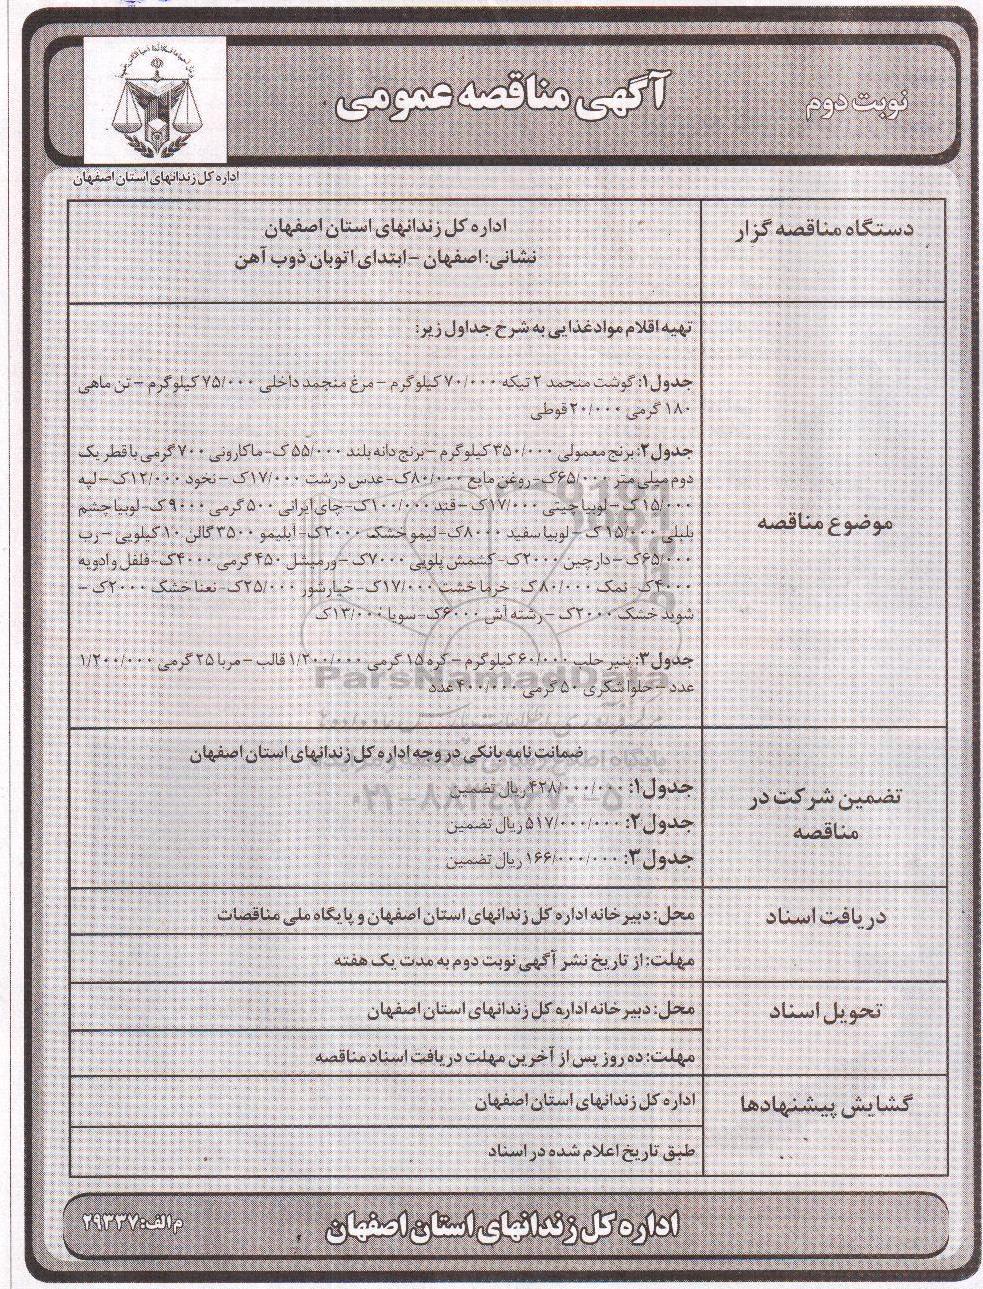 نوبت دوم
آگهی مناقصه عمومی
اداره کل زندانهای استان اصفهان
دستگاه مناقصه گزار
اداره کل زندانهای استان اصفهان
نشانی: اصفهان – ابتدای اتوبان ذوب آهن
موضوع مناقصه
تهیه اقلام مواد غذایی به شرح جداول زیر:
جدول۱: گوشت منجمد ۲ تیکه ۷۰/۰۰۰ کیلوگرم – مرغ منجمد داخلی ۷۵/۰۰۰ کیلوگرم – تن ماهی
۱۸۰ گرمی ۲۰/۰۰۰ قوطی
جدول۲: برنج معمولی ۳۵۰/۰۰۰ کیلوگرم – برنج دانه بلند ۵۵/۰۰۰ ک- ماکارونی ۷۰۰ گرمی با قطر یک
دوم میلی متر ۶۵/۰۰۰ک- روغن مایع ۸۰/۰۰۰ک- عدس درشت ۱۷/۰۰۰ک – نخود ۱۲/۰۰۰ک – لپه
۱۵/۰۰۰ ک – لوبیا چیتی ۱۷/۰۰۰ک – قند ۱۰۰/۰۰۰ک- چای ایرانی ۵۰۰ گرمی ۹۰۰۰ ک- لوبیا چشم
بلبلی ۱۵/۰۰۰ ک – لوبیا سفید ۸۰۰۰ک- لیمو خشک ۲۰۰۰ک- آبلیمو ۳۵۰۰ گالن ۱۰ کیلویی – رب
۶۵/۰۰۰ک – دارچین ۲۰۰۰ک- کشمش پلویی ۷۰۰۰ک – ورمیشل ۴۵۰ گرمی ۴۰۰۰ک- فلفل و ادویه
۴۰۰۰ک- نمک ۸۰/۰۰۰ک - خرما خشت ۱۷/۰۰۰ک- خیارشور ۲۵/۰۰۰ک- نعنا خشک ۲۰۰۰ک –
شوید خشک ۲۰۰۰ک – رشته آش ۶۰۰۰ک- سویا ۱۳/۰۰۰ک
جدول۳: پنیر حلب ۶۰/۰۰۰ کیلوگرم – کره ۱۵ گرمی ۱/۲۰۰/۰۰۰ قالب – مربا ۲۵ گرمی ۱/۲۰۰/۰۰۰
عدد – حلوا شکری ۵۰ گرمی ۴۰۰/۰۰۰ عدد
ParsNamadData
۰۲۱-۸۸۳۴۹۶۷۰-۵
تضمین شرکت در
مناقصه
ضمانت نامه بانکی در وجه اداره کل زندانهای استان اصفهان
جدول۱: ۴۲۸/۰۰۰/۰۰۰ ریال تضمین
جدول۲: ۵۱۷/۰۰۰/۰۰۰ ریال تضمین
جدول۳: ۱۶۶/۰۰۰/۰۰۰ ریال تضمین
دریافت اسناد
محل: دبیرخانه اداره کل زندانهای استان اصفهان و پایگاه ملی مناقصات
مهلت: از تاریخ نشر آگهی نوبت دوم به مدت یک هفته
تحویل اسناد
محل: دبیرخانه اداره کل زندانهای استان اصفهان
مهلت: ده روز پس از آخرین مهلت دریافت اسناد مناقصه
گشایش پیشنهادها
اداره کل زندانهای استان اصفهان
طبق تاریخ اعلام شده در اسناد
اداره کل زندانهای استان اصفهان
م الف: ۲۹۳۳۷